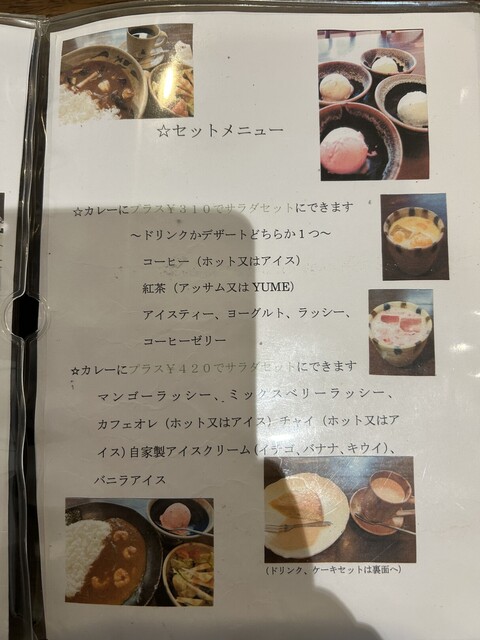 ☆セットメニュー
☆カレーにプラス￥３１０でサラダセットにできます
～ドリンクかデザートどちらか１つ～
コーヒー（ホット又はアイス）
紅茶（アッサム又は YUME）
アイスティー、ヨーグルト、ラッシー、
コーヒーゼリー
☆カレーにプラス￥４２０でサラダセットにできます
マンゴーラッシー、ミックスベリーラッシー、
カフェオレ（ホット又はアイス）チャイ（ホット又はア
イス）自家製アイスクリーム（イチゴ、バナナ、キウイ）、
バニラアイス
（ドリンク、ケーキセットは裏面へ）